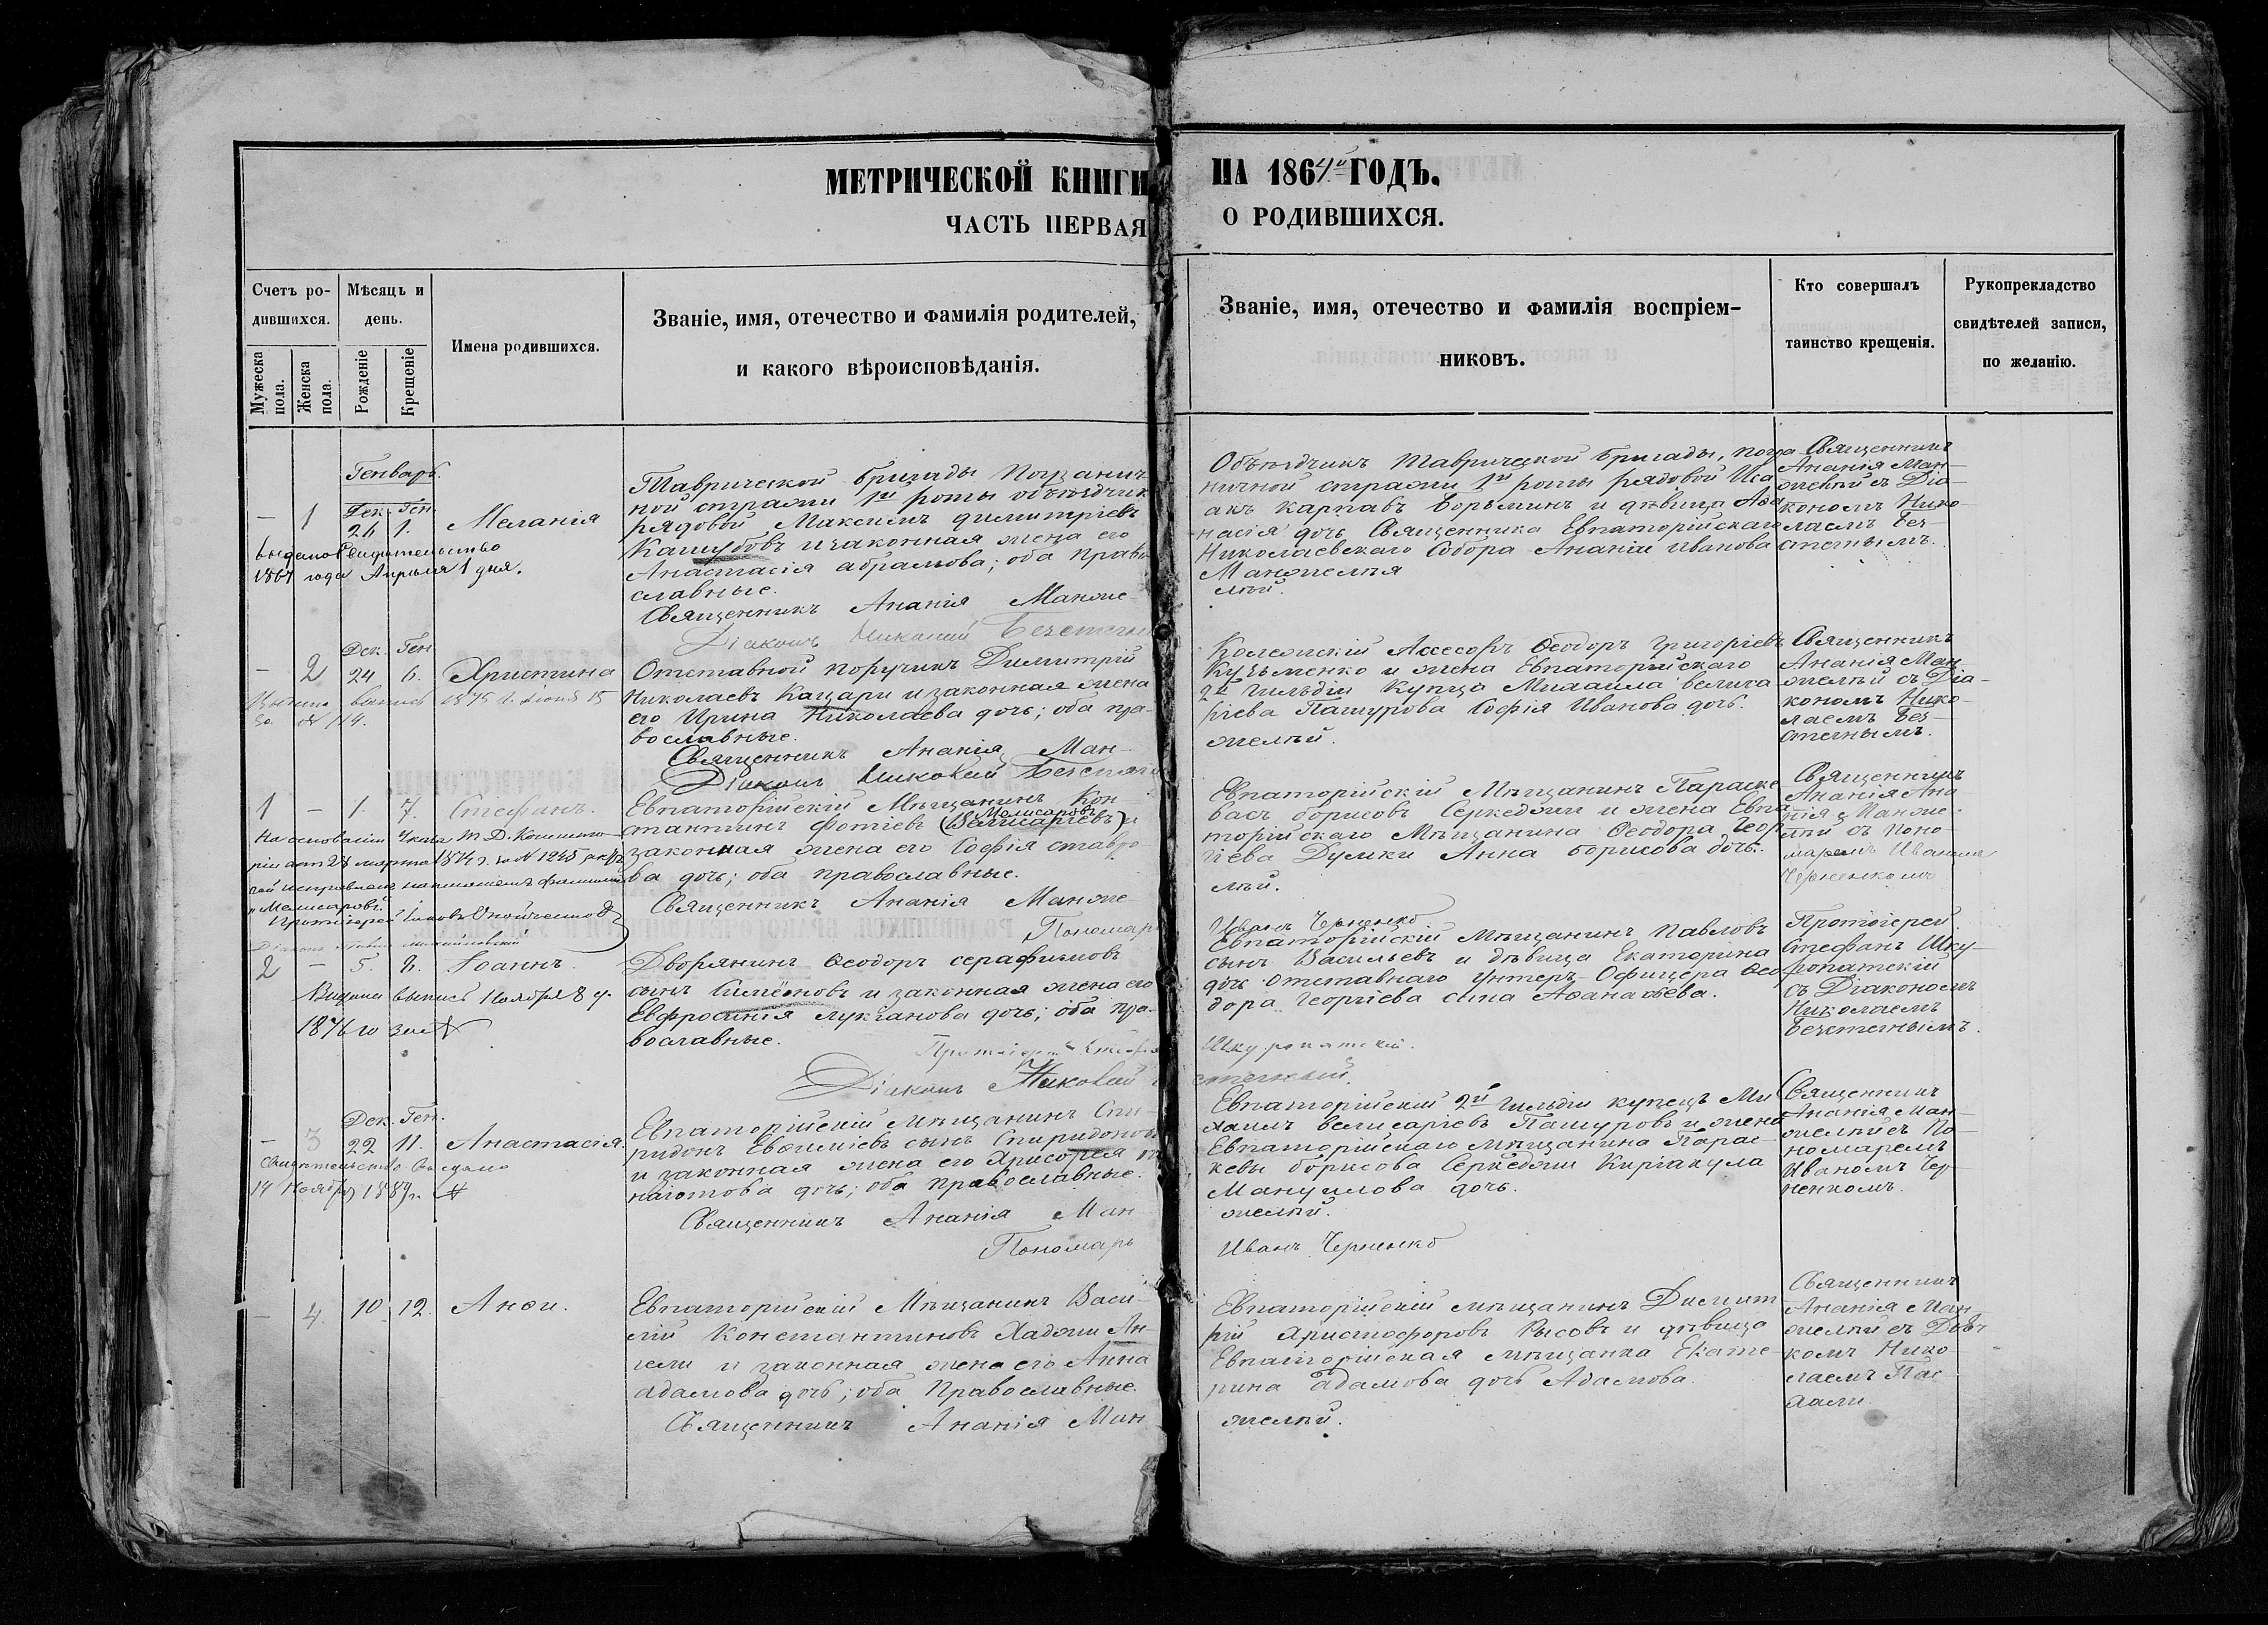 МЕТРИЧЕСКОЙ КНИГИ НА 1864й ГОДЪ.
ЧАСТЬ ПЕРВАЯ О РОДИВШИХСЯ.
Счетъ ро-
дившихся.
Мужеска пола.
Женска пола.
Мѣсяцъ и
день.
Рожденіе
Крещеніе
Имена родившихся.
Званіе, имя, отечество и фамилія родителей,
и какого вѣроисповѣданія.
Званіе, имя, отечество и фамилія воспріем-
никовъ.
Кто совершалъ
таинство крещенія.
Рукоприкладство
свидѣтелей записи,
по желанію.
Генварь.
Дек. Ген.
— 1 26 1. Меланія
Выдано Свидѣтельство
года Апрѣля 1 дня.
Таврической бригады Погранич
ной стражи 1й роты объѣздчик
рядовой Максимъ Димитріевъ
Кашубовъ и законная жена его
Анастасія Абрамова; оба право
славные.
Священникъ Ананія Манже
Діаконъ Николай Безстыч
Объѣздчикъ Таврической бригады, погра
ничной стражи 1й роты рядовой Иса
акъ Карпавъ Борьминъ и дѣвица Аѳа
насія дочь Священника Евпаторійскаго
Николаевскаго Собора Ананіи Иванова
Манжелѣя
лѣй.
Священникъ
Ананія Ман-
желѣй съ Діа-
кономъ Нико-
лаемъ Без-
стычнымъ.
Дек. Ген
— 2 24 6. Христина
выпись 1875 г. 15
за № 114.
Отставной поручикъ Димитрій
Николаевъ Кацари и законная жена
его Ирина Николаева дочь; оба пра-
вославные.
Священникъ Ананія Ман-
Діаконъ Николай Безстыч
Колежскій Ассесоръ Ѳеодоръ Григорієвъ
Кузьменко и жена Евпаторійскаго
2й гильдіи Купца Михаила Велиса
ріева Пашурова Софія Иванова дочь.
желѣй.
Священникъ
Ананія Ман
желѣй съ Діа-
кономъ Нико-
лаемъ Без-
стычнымъ.
1 — 1. 7. Стефанъ.
На основаніи Указа Т. Д. Консисто-
ріи отъ 28 марта 1874 г. за № 1245
исправлена фамилія
„Мелисаровъ"
Протоіерей
Евпаторійскій Мѣщанинъ Кон
Мелисаровъ
стантинъ Фотіевъ (Велисаріевъ) и
законная жена его Софія Ставро
ва дочь; оба православные.
Священникъ Ананія Манже
Пономарь
Евпаторійскій Мѣщанинъ Параске
васъ Борисовъ Серкеджи и жена Евпа
торійскаго Мѣщанина Ѳеодора Геор
гіева Думки Анна Борисова дочь.
лѣй.
Иванъ Черненко
Священникъ
Ананія Ана
нія Манже
лѣй съ Поно-
маремъ Иваномъ
Черненкомъ
2 — 5. 8. Іоаннъ.
Выдана выпись Ноября 8 д.
1876 го за №
Дворянинъ Ѳеодоръ Серафимовъ
сынъ Симёновъ и законная жена его
Евфросинія Лукіанова дочь; оба пра-
вославные.
Протоіерей Стефан
Діаконъ Николай
Евпаторійскій Мѣщанинъ Павловъ
сынъ Васильевъ и дѣвица Екатерина
дочь отставнаго Унтеръ-Офицера Ѳео
дора Георгіева сына Аѳанасьева.
Шкуропатскій.
стычный.
Протоіерей
Стефанъ Шку-
ропатскій
съ Діакономъ
Николаемъ
Безстычнымъ.
Дек. Ген.
— 3 22 11. Анастасія.
Свидѣтельство выдано
14 Ноября 1889 г. №
Евпаторійскій Мѣщанинъ Спи-
ридонъ Евѳиміевъ сынъ Спиридоновъ
и законная жена его Хрисоѳея
наготова дочь; оба православные.
Священникъ Ананія Ман
Пономарь
Евпаторійскій 2й гильдіи купецъ Ми
хаилъ Велисаріевъ Пашуровъ и жена
Евпаторійскаго Мѣщанина Парас-
кевы Борисова Серкеджи Киріакула
Мануилова дочь.
желѣй.
Иванъ Черненко
Священникъ
Ананія Ман-
желѣй съ По-
номаремъ
Иваномъ Чер-
ненкомъ.
— 4. 10. 12. Анѳи.
Евпаторійскій Мѣщанинъ Васи-
лій Константиновъ Хаджи Ан-
гели и законная жена его Анна
Адамова дочь; оба Православные.
Священникъ Ананія Ман
Евпаторійскій мѣщанинъ Димит
рій Христофоровъ Рысовъ и дѣвица
Евпаторійская мѣщанка Екате-
рина Адамова дочь Адамова.
желѣй.
Священникъ
Ананія Ман-
желѣй съ Дьяч
комъ Нико
лаемъ Пас
хали